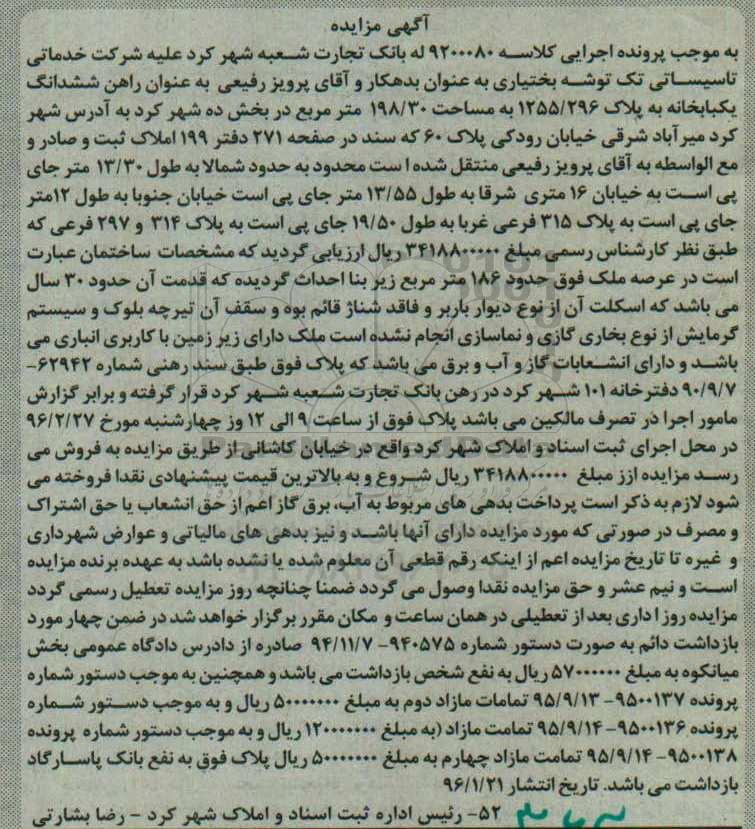 آگهی مزایده
به موجب پرونده اجرایی کلاسه ۹۲۰۰۰۸۰ له بانک تجارت شعبه شهر کرد علیه شرکت خدماتی
تاسیساتی تک توشه بختیاری به عنوان بدهکار و آقای پرویز رفیعی به عنوان راهن ششدانگ
یکبابخانه به پلاک ۱۲۵۵/۲۹۶ به مساحت ۱۹۸/۳۰ متر مربع در بخش ده شهر کرد به آدرس شهر
کرد میرآباد شرقی خیابان رودکی پلاک ۶۰ که سند در صفحه ۲۷۱ دفتر ۱۹۹ املاک ثبت و صادر و
مع الواسطه به آقای پرویز رفیعی منتقل شده ا ست محدود به حدود شمالا به طول ۱۳/۳۰ متر جای
پی است به خیابان ۱۶ متری شرقا به طول ۱۳/۵۵ متر جای پی است خیابان جنوبا به طول ۱۲متر
جای پی است به پلاک ۳۱۵ فرعی غربا به طول ۱۹/۵۰ جای پی است به پلاک ۳۱۴ و ۲۹۷ فرعی که
طبق نظر کارشناس رسمی مبلغ ۳۴۱۸۸۰۰۰۰۰ ریال ارزیابی گردید که مشخصات ساختمان عبارت
است در عرصه ملک فوق حدود ۱۸۶ متر مربع زیر بنا احداث گردیده که قدمت آن حدود ۳۰ سال
می باشد که اسکلت آن از نوع دیوار باربر و فاقد شناژ قائم بوه و سقف آن تیرچه بلوک و سیستم
گرمایش از نوع بخاری گازی و نماسازی انجام نشده است ملک دارای زیر زمین با کاربری انباری می
باشد و دارای انشعابات گاز و آب و برق می باشد که پلاک فوق طبق سند رهنی شماره ۶۲۹۴۲-
۹۰/۹/۷ دفترخانه ۱۰۱ شهر کرد در رهن بانک تجارت شعبه شهر کرد قرار گرفته و برابر گزارش
مامور اجرا در تصرف مالکین می باشد پلاک فوق از ساعت ۹ الی ۱۲ وز چهارشنبه مورخ ۹۶/۲/۲۷
در محل اجرای ثبت اسناد و املاک شهر کرد واقع در خیابان کاشانی از طریق مزایده به فروش می
رسد مزایده ازز مبلغ ۳۴۱۸۸۰۰۰۰۰ ریال شروع و به بالاترین قیمت پیشنهادی نقدا فروخته می
شود لازم به ذکر است پرداخت بدهی های مربوط به آب، برق گاز اعم از حق انشعاب یا حق اشتراک
و مصرف در صورتی که مورد مزایده دارای آنها باشد و نیز بدهی های مالیاتی و عوارض شهرداری
و غیره تا تاریخ مزایده اعم از اینکه رقم قطعی آن معلوم شده یا نشده باشد به عهده برنده مزایده
است و نیم عشر و حق مزایده نقدا وصول می گردد ضمنا چنانچه روز مزایده تعطیل رسمی گردد
مزایده روز ا داری بعد از تعطیلی در همان ساعت و مکان مقرر برگزار خواهد شد در ضمن چهار مورد
بازداشت دائم به صورت دستور شماره ۹۴۰۵۷۵- ۹۴/۱۱/۷ صادره از دادرس دادگاه عمومی بخش
میانکوه به مبلغ ۵۷۰۰۰۰۰۰ ریال به نفع شخص بازداشت می باشد و همچنین به موجب دستور شماره
پرونده ۹۵۰۰۱۳۷- ۹۵/۹/۱۳ تمامات مازاد دوم به مبلغ ۵۰۰۰۰۰۰۰ ریال و به موجب دستور شماره
پرونده ۹۵۰۰۱۳۶- ۹۵/۹/۱۴ تمامت مازاد (به مبلغ ۱۲۰۰۰۰۰۰۰ ریال و به موجب دستور شماره پرونده
۹۵۰۰۱۳۸- ۹۵/۹/۱۴ تمامت مازاد چهارم به مبلغ ۵۰۰۰۰۰۰۰ ریال پلاک فوق به نفع بانک پاسارگاد
بازداشت می باشد. تاریخ انتشار ۹۶/۱/۲۱
۵۲- رئیس اداره ثبت اسناد و املاک شهر کرد - رضا بشارتی